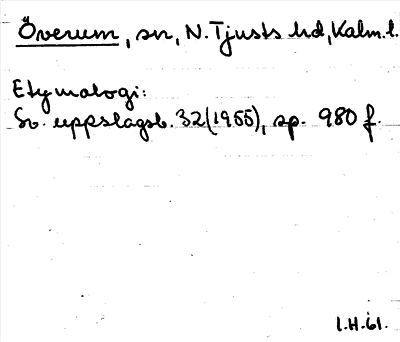 Överum, sn, N. Tjusts hd, Kalm. l.
Etymologi:
Sv. uppslagsb. 32 (1955), sp. 980 f.
I.H. 61.